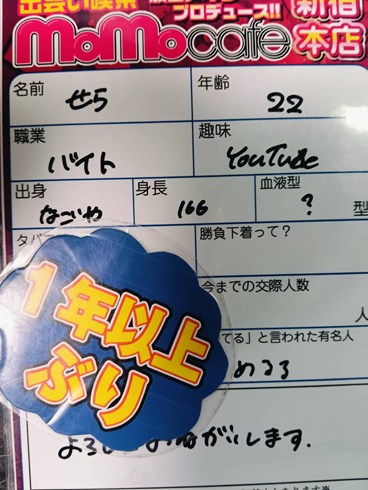 出会い喫茶
プロデュース!!
新宿
MoMocafe
本店
名前
せら
年齢
22
職業
バイト
趣味
YouTube
出身
なごや
身長
166
血液型
?
型
タバ
勝負下着って?
今までの交際人数
人
てる」と言われた有名人
めるる
1年以上
ぶり
します.